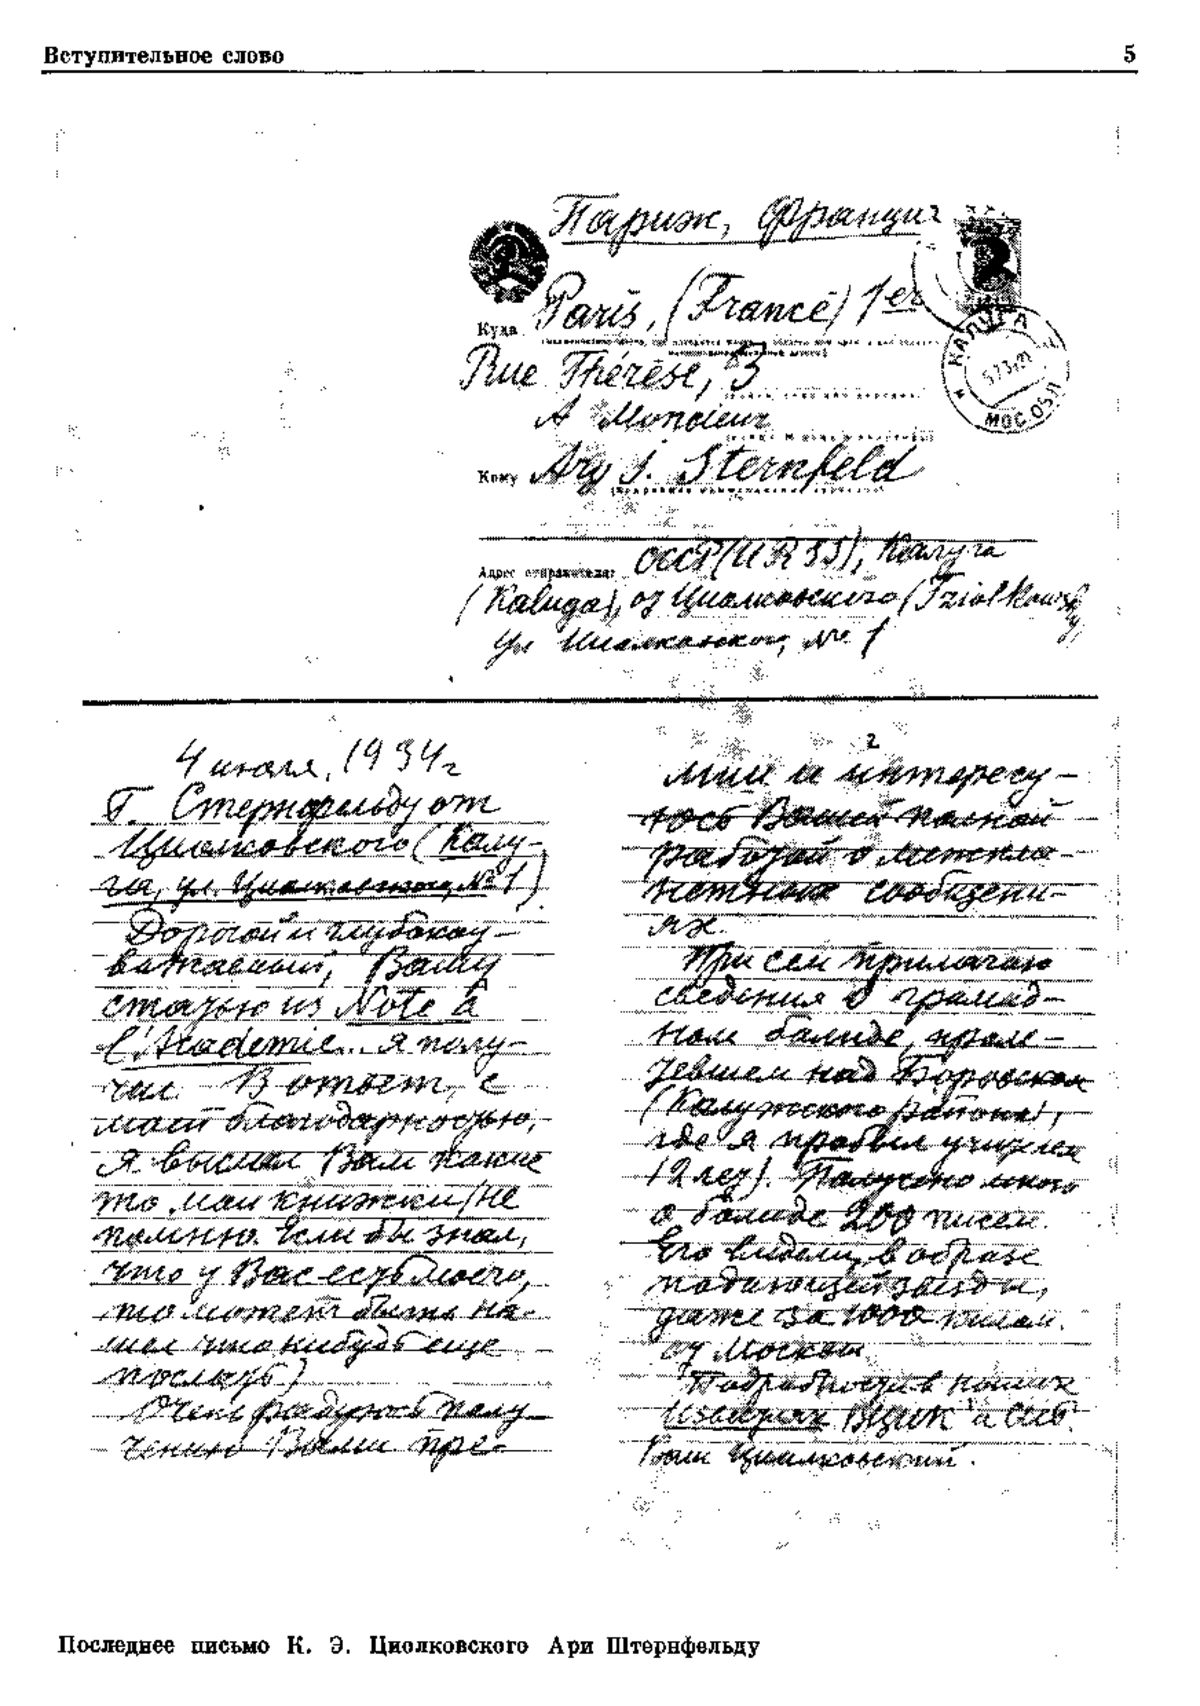 Вступительное слово 5
Париж, Франция
2
Куда Paris, (France) 1er
Rue Thérèse, 3
A Monsieur
Кому Ary J. Sternfeld
КАЛУГА
МОС. ОБЛ
Адрес отправителя: СССР (URSS), Калуга
(Kaluga), от Циолковского (Tziolkowsky),
ул Циолковского, № 1
4 июля, 1934 г
Г. Стернфельду от
Циолковского (Калу-
га, ул. Циолковского, № 1)
Дорогой и глубокоу-
важаемый, Вашу
статью из Note à
l'Academie... я полу-
чил. В ответ, с
моей благодарностью,
я выслал Вам какие
то мои книжки (не
помню. Если бы знал,
что у Вас есть моего,
то может быть на-
шел что нибудь еще
послать)
Очень радуюсь полу-
чению Вами пре-
2
мии и интересу-
юсь Вашей полной
работой о межпла-
нетных сообщени-
ях.
При сем прилагаю
сведения о громад-
ном болиде, проле-
тевшем над Боровском
(Калужского района),
где я пробыл учителем
12 лет). Получено много
о болиде 200 писем.
Его видели, в образе
падающей звезды,
даже за 1000 килом.
от Москвы
Подробности в наших
Известиях ВЦИК
Ваш Циолковский.
Последнее письмо К. Э. Циолковского Ари Штернфельду